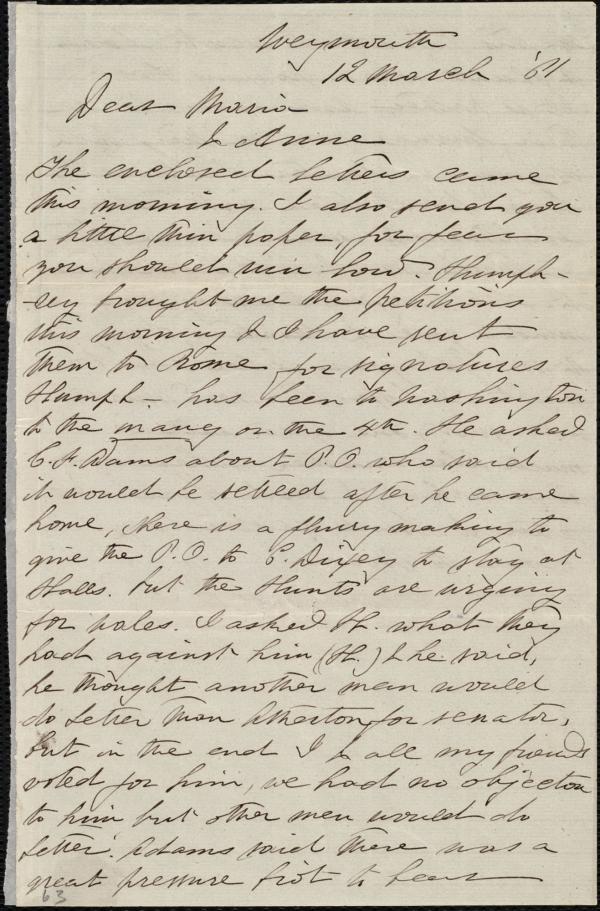 Weymouth
12 March '61
Dear Maria
& Anne
The enclosed letters came
this morning. I also send you
a little thin paper, for fear
you should run low. Humph-
-rey brought me the petitions
this morning & I have sent
them to Rome for signatures
Humph - has been to Washington
to the inaug on the 4th. He asked
C. F. Adams about P.O. who said
it would be settled after he came
home, there is a flurry making to
give the P.O. to E. Dizey to stay at
Halls. but the Hunts are urging
for Vales. I asked H. what they
had against him (H.) & he said,
he thought another man would
do better than Atherton for senator,
but in the end I & all my friends
voted for him, we had no objection
to him but other men would do
better. Adams said there was a
great pressure brot to bear
63